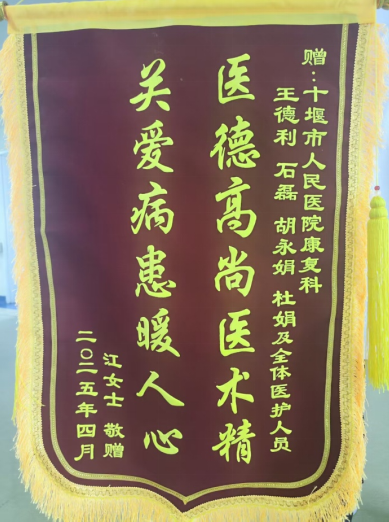 赠：十堰市人民医院康复科
王德利 石磊 胡永娟 杜娟及全体医护人员
医德高尚医术精
关爱病患暖人心
江女士 敬赠
二〇二五年四月